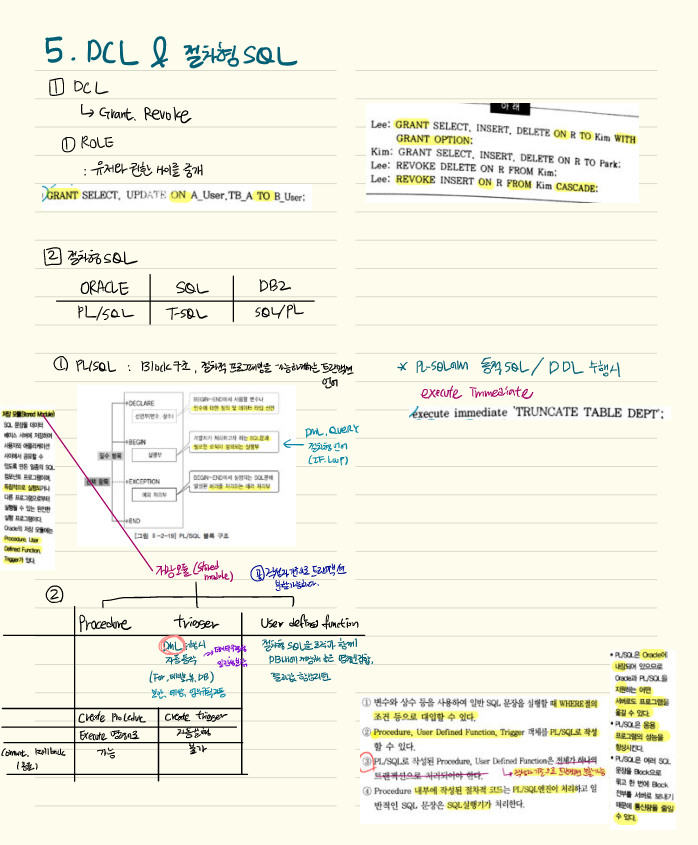 5. DCL & 절차형 SQL
1 DCL
↳ Grant, Revoke
① ROLE
: 유저와 권한 사이를 중개
GRANT SELECT, UPDATE ON A_User.TB_A TO B_User;
아 래
Lee: GRANT SELECT, INSERT, DELETE ON R TO Kim WITH
GRANT OPTION;
Kim: GRANT SELECT, INSERT, DELETE ON R TO Park;
Lee: REVOKE DELETE ON R FROM Kim;
Lee: REVOKE INSERT ON R FROM Kim CASCADE;
2 절차형 SQL
ORACLE SQL DB2
PL/SQL T-SQL SQL/PL
① PL/SQL : Block 구조, 절차적 프로그래밍을 가능하게하는 트랜잭션
언어
* PL-SQL에서 동적 SQL / DDL 수행시
execute immediate
execute immediate 'TRUNCATE TABLE DEPT';
저장 모듈(Stored Module)
SQL 문장을 데이터
베이스 서버에 저장하여
사용자와 애플리케이션
사이에서 공유할 수
있도록 만든 일종의 SQL
컴포넌트 프로그램이며,
독립적으로 실행되거나
다른 프로그램으로부터
실행될 수 있는 완전한
실행 프로그램이다.
Oracle의 저장 모듈에는
Procedure, User
Defined Function,
Trigger가 있다.
DECLARE
선언부(변수, 상수)
BEGIN~END에서 사용할 변수나
인수에 대한 정의 및 데이터 타입 선언
BEGIN
실행부
필수 항목
개발자가 처리하고자 하는 SQL문과
필요한 로직이 정의되는 실행부
선택 항목
EXCEPTION
예외 처리부
BEGIN~END에서 실행되는 SQL문에
발생된 에러를 처리하는 에러 처리부
END
[그림 Ⅱ-2-19] PL/SQL 블록 구조
DML, QUERY
절차형 언어
(IF, Loop)
저장모듈 (Stored
module)
작업의 기준으로 트랜잭션
분할가능하다.
②
Procedure trigger User defined function
DML 수행시
자동 동작
절차형 SQL을 로직과 함께
DB내에
Create Procedure Create trigger
Execute 명령어로 자동실행
Commit, Rollback 가능 불가
① 변수와 상수 등을 사용하여 일반 SQL 문장을 실행할 때 WHERE절의
조건 등으로 대입할 수 있다.
② Procedure, User Defined Function, Trigger 객체를 PL/SQL로 작성
할 수 있다.
③ PL/SQL로 작성된 Procedure, User Defined Function은 전체가 하나의
트랜잭션으로 처리되어야 한다.
④ Procedure 내부에 작성된 절차적 코드는 PL/SQL엔진이 처리하고 일
반적인 SQL 문장은 SQL실행기가 처리한다.
• PL/SQL은 Oracle에
내장되어 있으므로
Oracle과 PL/SQL을
지원하는 어떤
서버로도 프로그램을
옮길 수 있다.
• PL/SQL은 응용
프로그램의 성능을
향상시킨다.
• PL/SQL은 여러 SQL
문장을 Block으로
묶고 한 번에 Block
전부를 서버로 보내기
때문에 통신량을 줄일
수 있다.